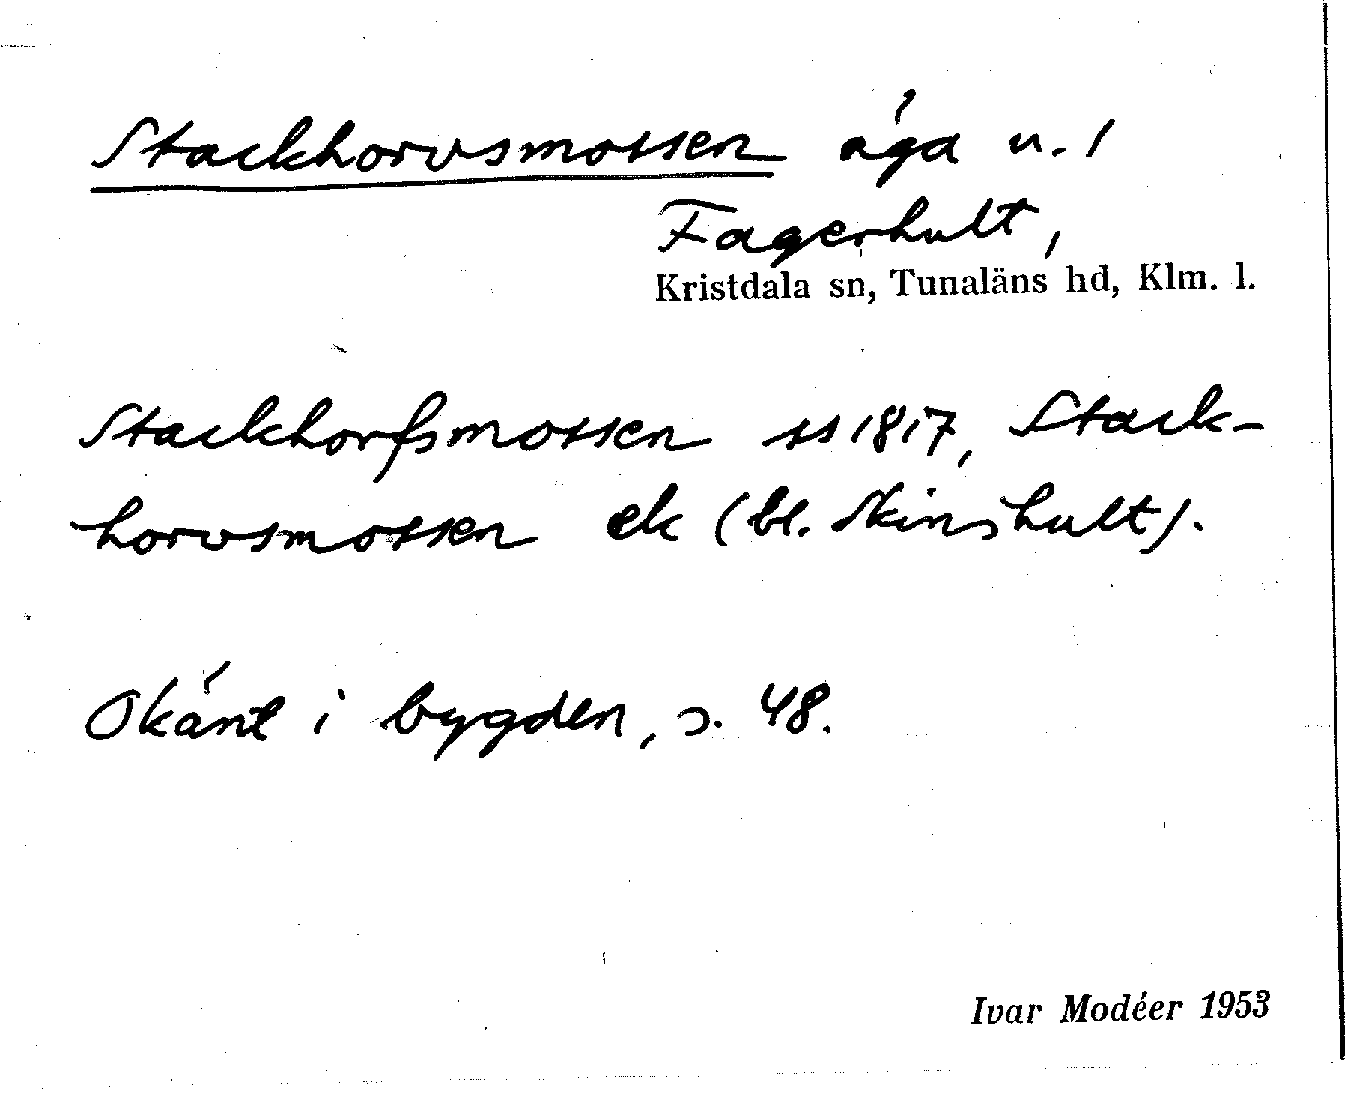 Stackhorvsmossen äga u. 1
Fagerhult,
Kristdala sn, Tunaläns hd, Klm. l.
Stackhorfsmossen ss 1817, Stack-
horvsmossen ek (bl. Skinshult).
Okänt i bygden, s. 48.
Ivar Modéer 1953